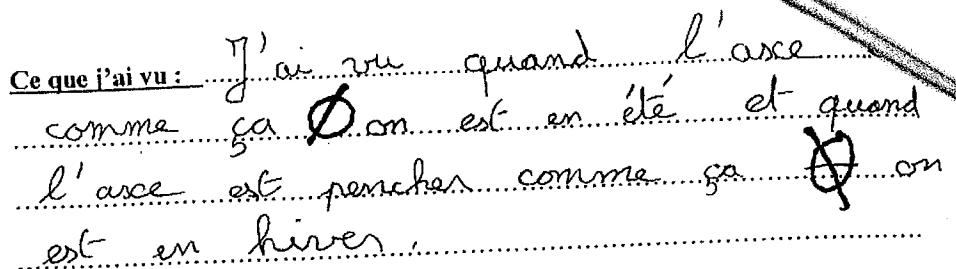 Ce que j'ai vu : J'ai vu quand l'asce
comme ça on est en été et quand
l'asce est pencher comme ça on
est en hiver.